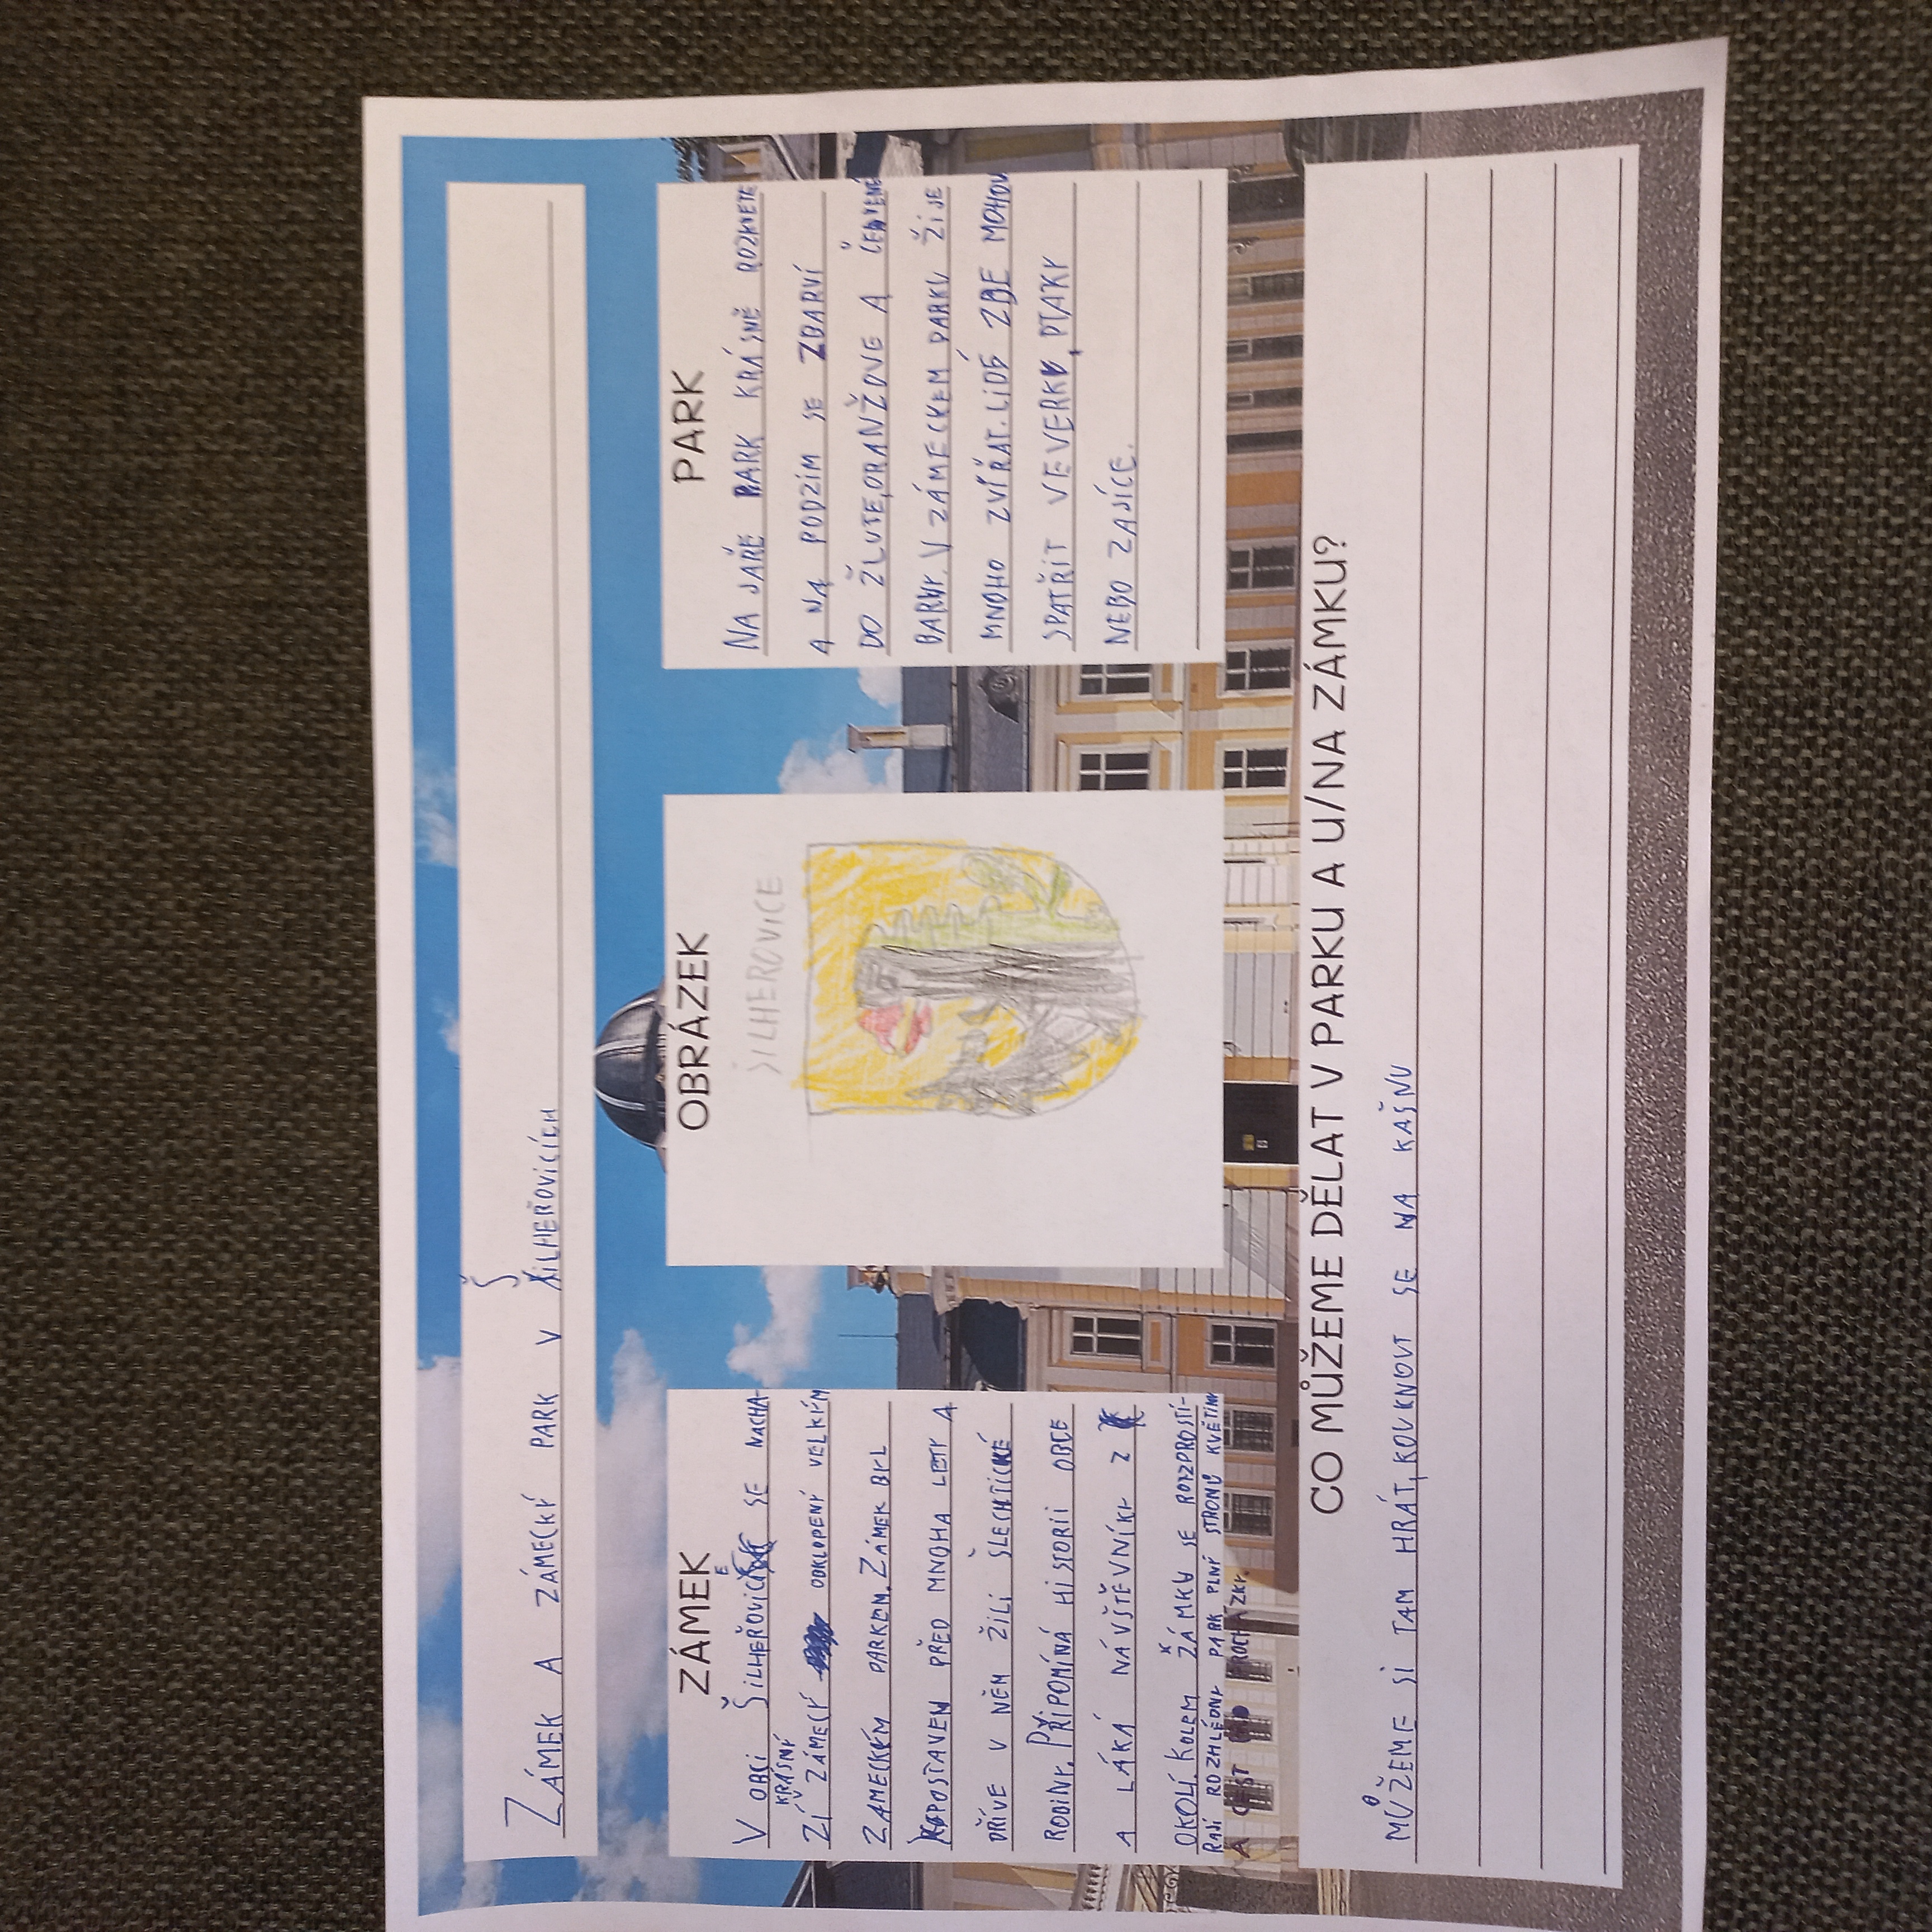 ZÁMEK A ZÁMECKÝ PARK V ŠILHEŘOVICÍCH
ZÁMEK
V OBCI ŠILHEŘOVICE SE NACHÁ-
KRÁSNÝ
ZÍ ZÁMECÝ OBKLOPENÝ VELKÝM
ZÁMECKÝM PARKEM. ZÁMEK BYL
POSTAVEN PŘED MNOHA LETY A
DŘÍVE V NĚM ŽILI ŠLECHTICKÉ
RODINY. PŘIPOMÍNÁ HISTORII OBCE
A LÁKÁ NÁVŠTĚVNÍKY Z
OKOLÍ. KOLEM ZÁMKU SE ROZPROSTÍ-
RAJÍ ROZHLÉDNY PARK PLNÝ STROMŮ KVĚTIN
A CEST NA PROCHÁZKY.
OBRÁZEK
ŠILHEROVICE
PARK
NA JAŘE PARK KRÁSNĚ ROZKVETE
A NA PODZIM SE ZBARVÍ
DO ŽLUTE, ORANŽOVE A ČERVENÉ
BARVY. V ZÁMECKEM PARKU ŽIJE
MNOHO ZVÍŘAT. LIDÉ ZDE MOHOU
SPATŘIT VEVERKY, PTAKY
NEBO ZAJÍCE.
CO MŮŽEME DĚLAT V PARKU A U/NA ZÁMKU?
MŮŽEME SI TAM HRÁT, KOUKNOUT SE NA KAŠNU